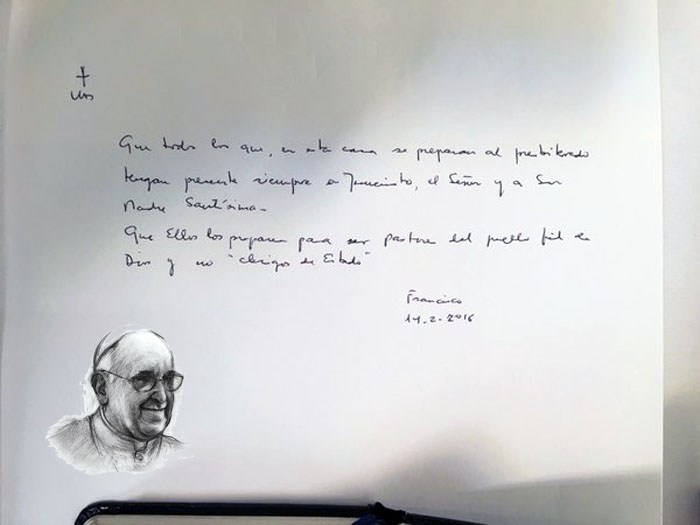 ✝
Que todos los que, en esta casa se preparan al presbiterado
tengan presente siempre a Jesucristo, el Señor y a Su
Madre Santísima.
Que Ellos los preparen para ser pastores del pueblo fiel de
Dios y no "clérigos de Estado"
Francisco
14-2-2016